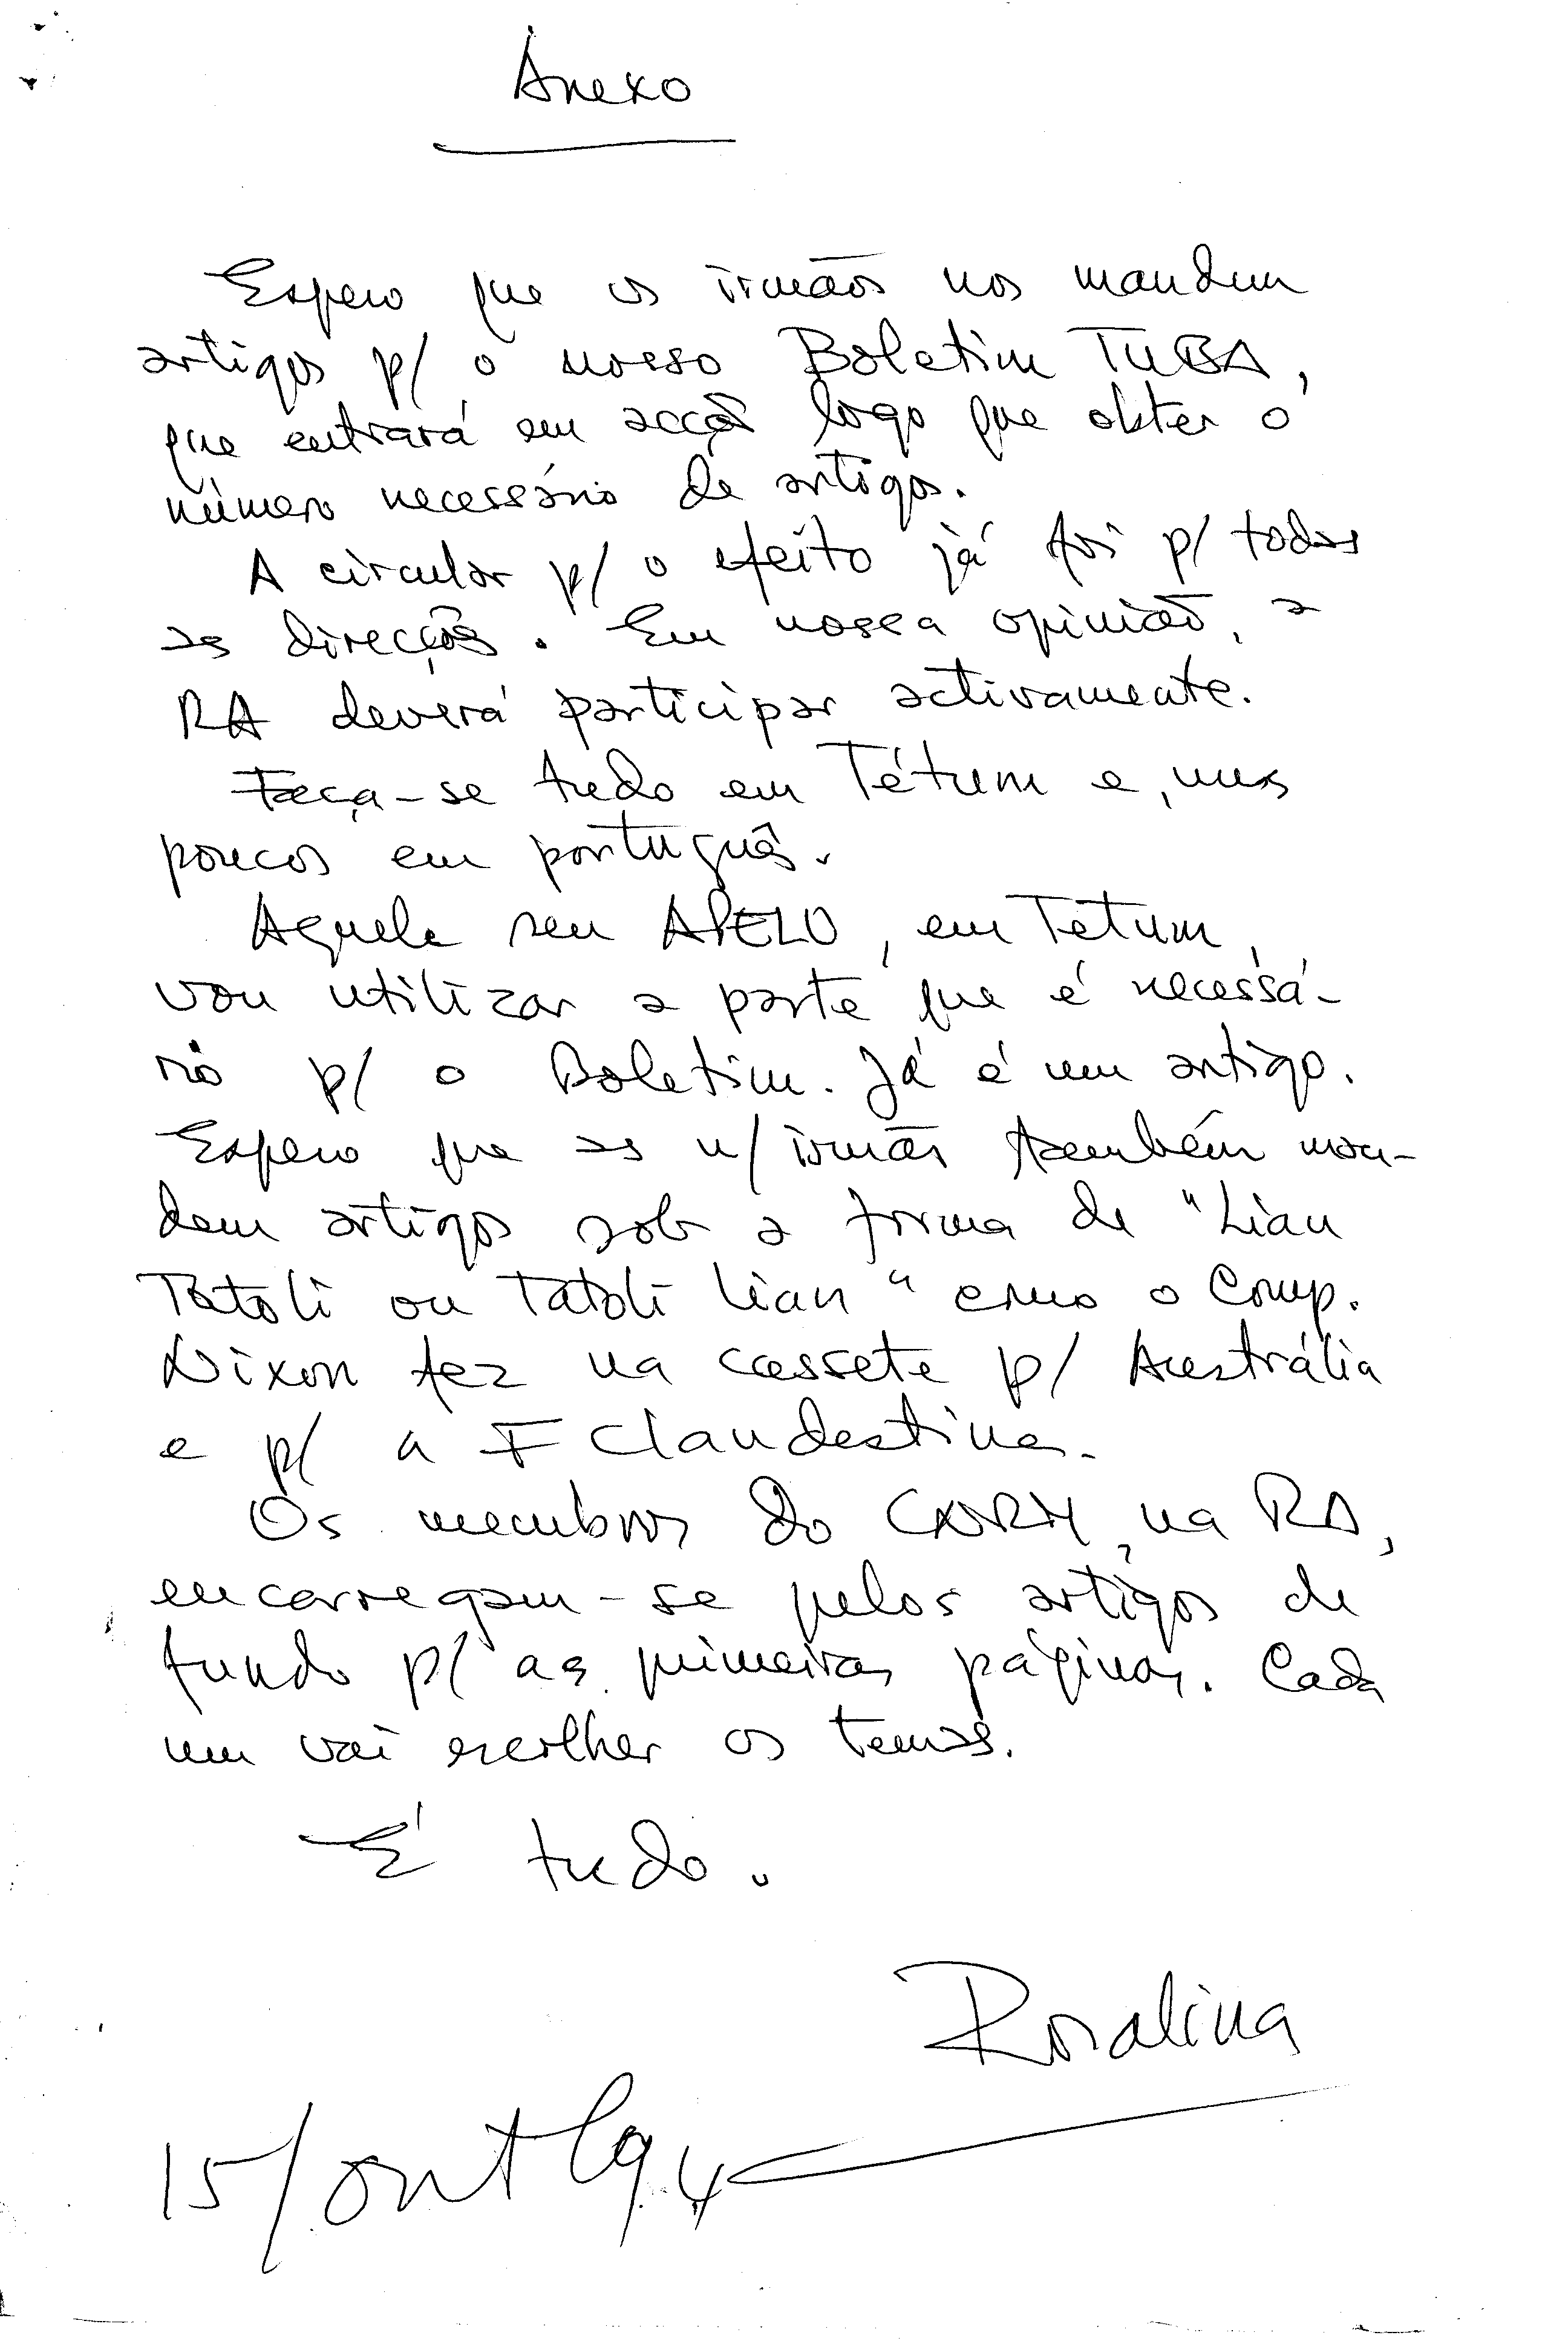 Anexo
Espero que os irmãos nos mandem
artigos p/ o nosso Boletim TUBA,
que entrará em acção logo que obter o
número necessário de artigos.
A circular p/ o efeito já foi p/ todas
as direcções. Em nossa opinião, a
RA deverá participar activamente.
Faça-se tudo em Tétum e, uns
poucos em português.
Aquele seu APELO, em Tetum,
vou utilizar a parte que é necessá-
rio p/ o Boletim. Já é um artigo.
Espero que as n/ irmãs também man-
dem artigos sob a forma de "Lian
Tatoli ou Tatoli lian" como o Comp.
Nixon fez na cassete p/ Austrália
e p/ a F Clandestina.
Os membros do CNRM, na RA,
encarregam-se pelos artigos de
fundo p/ as primeiras páginas. Cada
um vai escolher os temas.
É tudo.
Rosalina
15/out/94